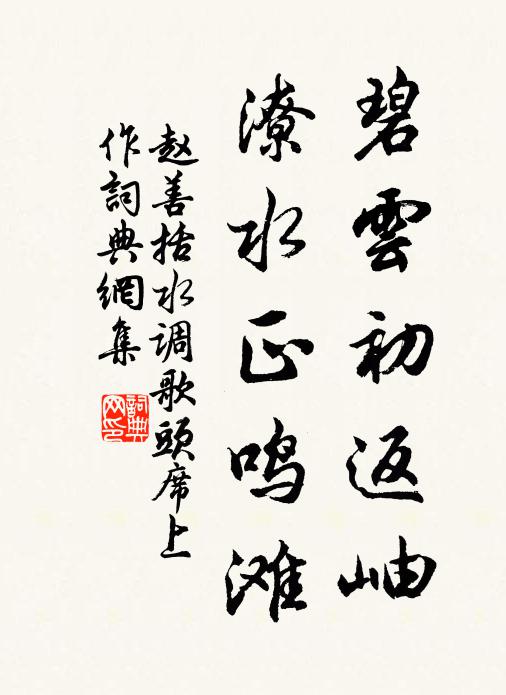 碧雲初返岫
潦水正鸣滩
赵善括水调歌頭席上
作詞典網集
詞典网印